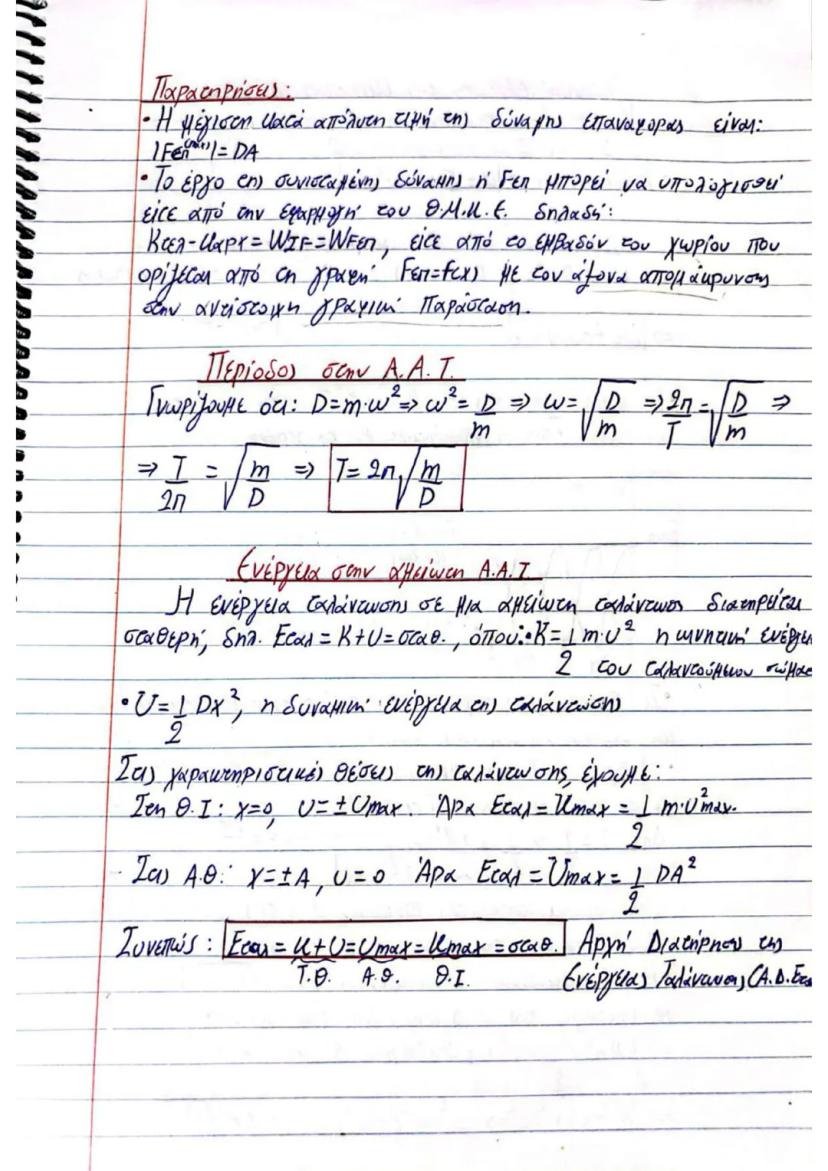 Παρατηρήσεις:
• Η μέγιστη κατά απόλυτη τιμή της δύναμης επαναφοράς είναι:
|Fεπ(max)| = DA
• Το έργο της συνισταμένης δύναμης ή Fεπ μπορεί να υπολογισθεί
είτε από την εφαρμογή του Θ.Μ.Κ.Ε. δηλαδή:
Κτελ-Καρχ = WΣF = WFεπ, είτε από το εμβαδόν του χωρίου που
ορίζεται από τη γραφή Fεπ=f(x) με τον άξονα απομάκρυνσης
στην αντίστοιχη γραφική παράσταση.
Περίοδος στην Α.Α.Τ.
Γνωρίζουμε ότι: D=m·ω² ⇒ ω² = D/m ⇒ ω = √(D/m) ⇒ 2π/T = √(D/m) ⇒
⇒ T/2π = √(m/D) ⇒ T = 2π√(m/D)
Ενέργεια στην αμείωτη Α.Α.Τ.
Η ενέργεια ταλάντωσης σε μια αμείωτη ταλάντωση διατηρείται
σταθερή, δηλ. Εταλ = Κ+U = σταθ., όπου: • Κ = 1/2 m·υ² η κινητική ενέργει
του ταλαντούμενου σώματ
• U = 1/2 Dx², η δυναμική ενέργεια της ταλάντωσης
Στις χαρακτηριστικές θέσεις της ταλάντωσης, έχουμε:
Στη Θ.Ι: x=0, υ=±υmax. Άρα Εταλ = Κmax = 1/2 m·υ²max.
· Στις Α.Θ: x=±A, υ=0 Άρα Εταλ = Umax = 1/2 DA²
Συνεπώς: Εταλ = Κ+U = Umax = Κmax = σταθ. Αρχή Διατήρησης της
Τ.Θ. Α.Θ. Θ.Ι. Ενέργειας Ταλάντωσης (Α.Δ.Ετα